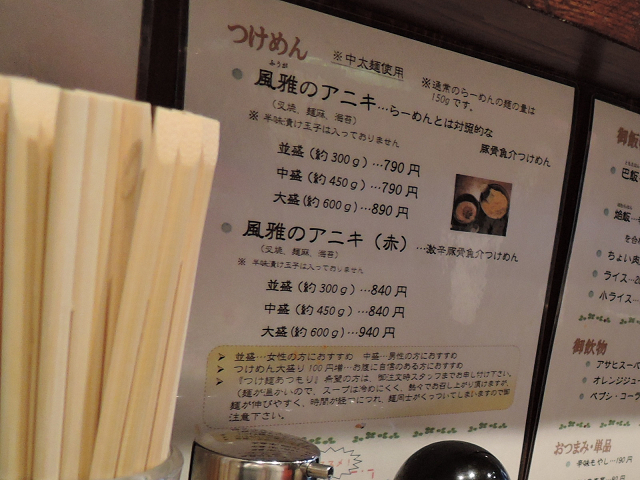 つけめん
※中太麺使用
※通常のらーめんの麺の量は
150gです。
ふうが
風雅のアニキ…らーめんとは対照的な
豚骨魚介つけめん
(叉焼、麺麻、海苔)
※ 半味漬け玉子は入っておりません
並盛(約300g)…790円
中盛(約450g)…790円
大盛(約600g)…890円
風雅のアニキ(赤)…激辛豚骨魚介つけめん
(叉焼、麺麻、海苔)
※ 半味漬け玉子は入っておりません
並盛(約300g)…840円
中盛(約450g)…840円
大盛(約600g)…940円
➢ 並盛…女性の方におすすめ 中盛…男性の方におすすめ
➢ つけめん大盛り100円増…お腹に自信のある方におすすめ
➢ 『つけ麺あつもり』希望の方は、御注文時スタッフまでお申し付け下さい。
(麺が温かいので、スープは冷めにくく、熱々でお召し上がり頂けますが、
麺が伸びやすく、時間が経つにつれ、麺同士がくっついてしまいますので御
注意下さい。
御飯
ライス…
小ライス…
御飲物
アサヒスーパー
オレンジジュー
ペプシ・コーラ
おつまみ・単品
辛味もやし…190円